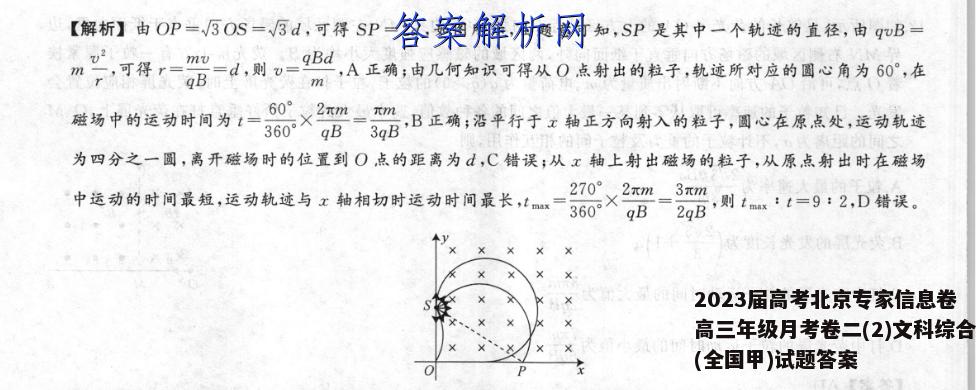 【解析】由 OP=√3 OS=√3 d,可得 SP= 答案解析网 知,SP 是其中一个轨迹的直径,由 qvB=
m v²/r,可得 r=mv/qB=d,则 v=qBd/m,A 正确;由几何知识可得从 O 点射出的粒子,轨迹所对应的圆心角为 60°,在
磁场中的运动时间为 t=60°/360°×2πm/qB=πm/3qB,B 正确;沿平行于 x 轴正方向射入的粒子,圆心在原点处,运动轨迹
为四分之一圆,离开磁场时的位置到 O 点的距离为 d,C 错误;从 x 轴上射出磁场的粒子,从原点射出时在磁场
中运动的时间最短,运动轨迹与 x 轴相切时运动时间最长,tmax=270°/360°×2πm/qB=3πm/2qB,则 tmax∶t=9∶2,D 错误。
y
× × × × ×
× × × × ×
S × × × × ×
× × × × ×
× × × × ×
O P x
2023届高考北京专家信息卷
高三年级月考卷二(2)文科综合
(全国甲)试题答案